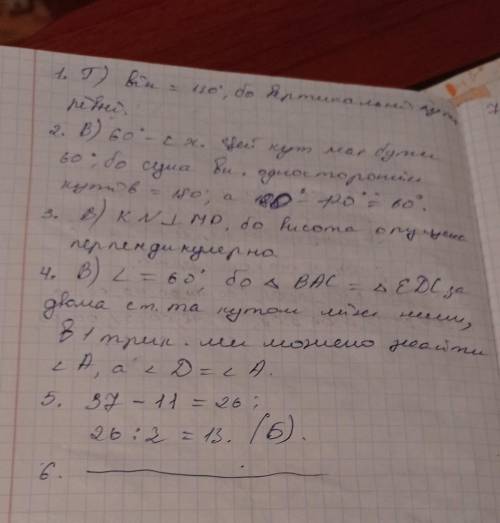 1. Г) він = 130°, бо вертикальні кути
рівні.
2. В) 60° - ∠ х. Цей кут має бути
60°, бо сума вн. односторонніх
кутів = 180°, а - 120° = 60°.
3. В) KN ⊥ MP, бо висота опущена
перпендикулярно.
4. В) ∠ = 60°, бо △ BAC = △ EDC за
двома ст. та кутом між ними,
в 1 трик. ми можемо знайти
∠ A, а ∠ D = ∠ A.
5. 37 - 11 = 26;
26 : 2 = 13. (Б).
6.
7